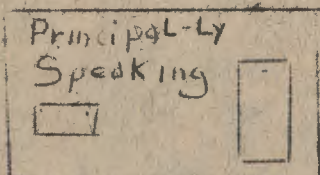 Principal-Ly
Speaking